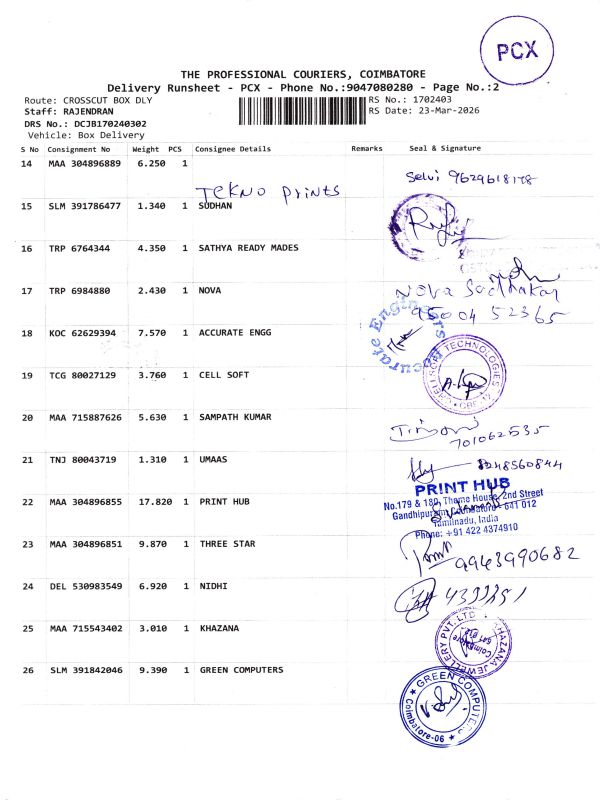 PCX
THE PROFESSIONAL COURIERS, COIMBATORE
Delivery Runsheet - PCX - Phone No.:9047080280 - Page No.:2
Route: CROSSCUT BOX DLY
RS No.: 1702403
Staff: RAJENDRAN
RS Date: 23-Mar-2026
DRS No.: DCJB170240302
Vehicle: Box Delivery
S No Consignment No Weight PCS Consignee Details Remarks Seal & Signature
14 MAA 304896889 6.250 1
Selvi
Tekno Prints
15 SLM 391786477 1.340 1 SUDHAN
16 TRP 6764344 4.350 1 SATHYA READY MADES
17 TRP 6984880 2.430 1 NOVA
Nova Sudhakar
95004 52365
18 KOC 62629394 7.570 1 ACCURATE ENGG
19 TCG 80027129 3.760 1 CELL SOFT
TECHNOLOGIES
20 MAA 715887626 5.630 1 SAMPATH KUMAR
701062535
21 TNJ 80043719 1.310 1 UMAAS
8248560844
22 MAA 304896855 17.820 1 PRINT HUB
PRINT HUB
No.179 & 180, Theme House, 2nd Street
Gandhipuram, Coimbatore - 641 012
Tamilnadu, India
Phone: +91 422 4374910
23 MAA 304896851 9.870 1 THREE STAR
9943990682
24 DEL 530983549 6.920 1 NIDHI
25 MAA 715543402 3.010 1 KHAZANA
KHAZANA JEWELLERY PVT. LTD
26 SLM 391842046 9.390 1 GREEN COMPUTERS
GREEN COMPUTERS
Coimbatore-06